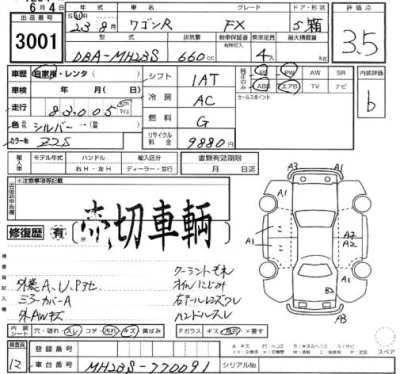 6月4日
グレード
ドア・形状
出品番号
3001
23年8月
ワゴンR
FX
5箱
型式
排気量
新車保証書
乗車定員
最大積載量
評価
DBA-MH23S
660cc
4人
kg
3.5
車歴 自家用・レンタ( )
シフト
1AT
PS
PW
AW
SR
内装評価
車検 年 月( 日)
冷房
AC
ABS
エアB
TV
ナビ
b
走行
83005
燃料
G
セールスポイント
色
シルバー→
カラーNo
Z2S
リサイクル料金
9880円
輸入車
モデル年式
ハンドル
輸入区分
書類有効期限
右H・左H
ディーラー・並行
月 日迄
※注意事項等記載
A3
A1
A1
修復歴 有
売切車輌
A2
A2
A1
外装A、U、Pアセ
クーラントモレ
オイルにじみ
ミラーカバーA
右テールレンズワレ
外AWキズ
ハンドルスレ
A1
B2
AB
内装シート
穴・破れ・スレ・コゲ・汚れ・キズ・黄ばみ
Fガラス
キズ・飛石・×要す
スペア
登録番号
12
車台番号
MH23S-770091
シリアルNo.